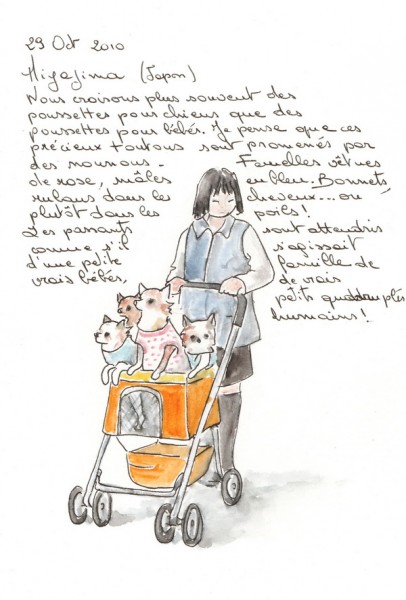 29 Oct 2010
Miyajima (Japon)
Nous croisons plus souvent des
poussettes pour chiens que des
poussettes pour bébés. Je pense que ces
précieux toutous sont promenés par
des nounous. Femelles vêtues
de rose, mâles en bleu. Bonnets,
rubans dans les cheveux... ou
plutôt dans les poils!
Les passants sont attendris
comme s'il s'agissait
d'une petite famille de
vrais bébés, de vrais
petits quadruplés
humains!